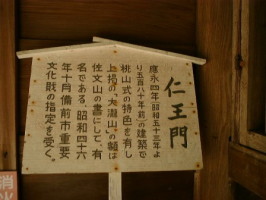 仁王門
應永四年(昭和五十三年よ
り五百八十年前)の建築で
桃山式の特色を有し
上掲の「大瀧山」の額は
佐文山の書にして、有
名である。昭和四十六
年十月備前市重要
文化財の指定を受く。
消火